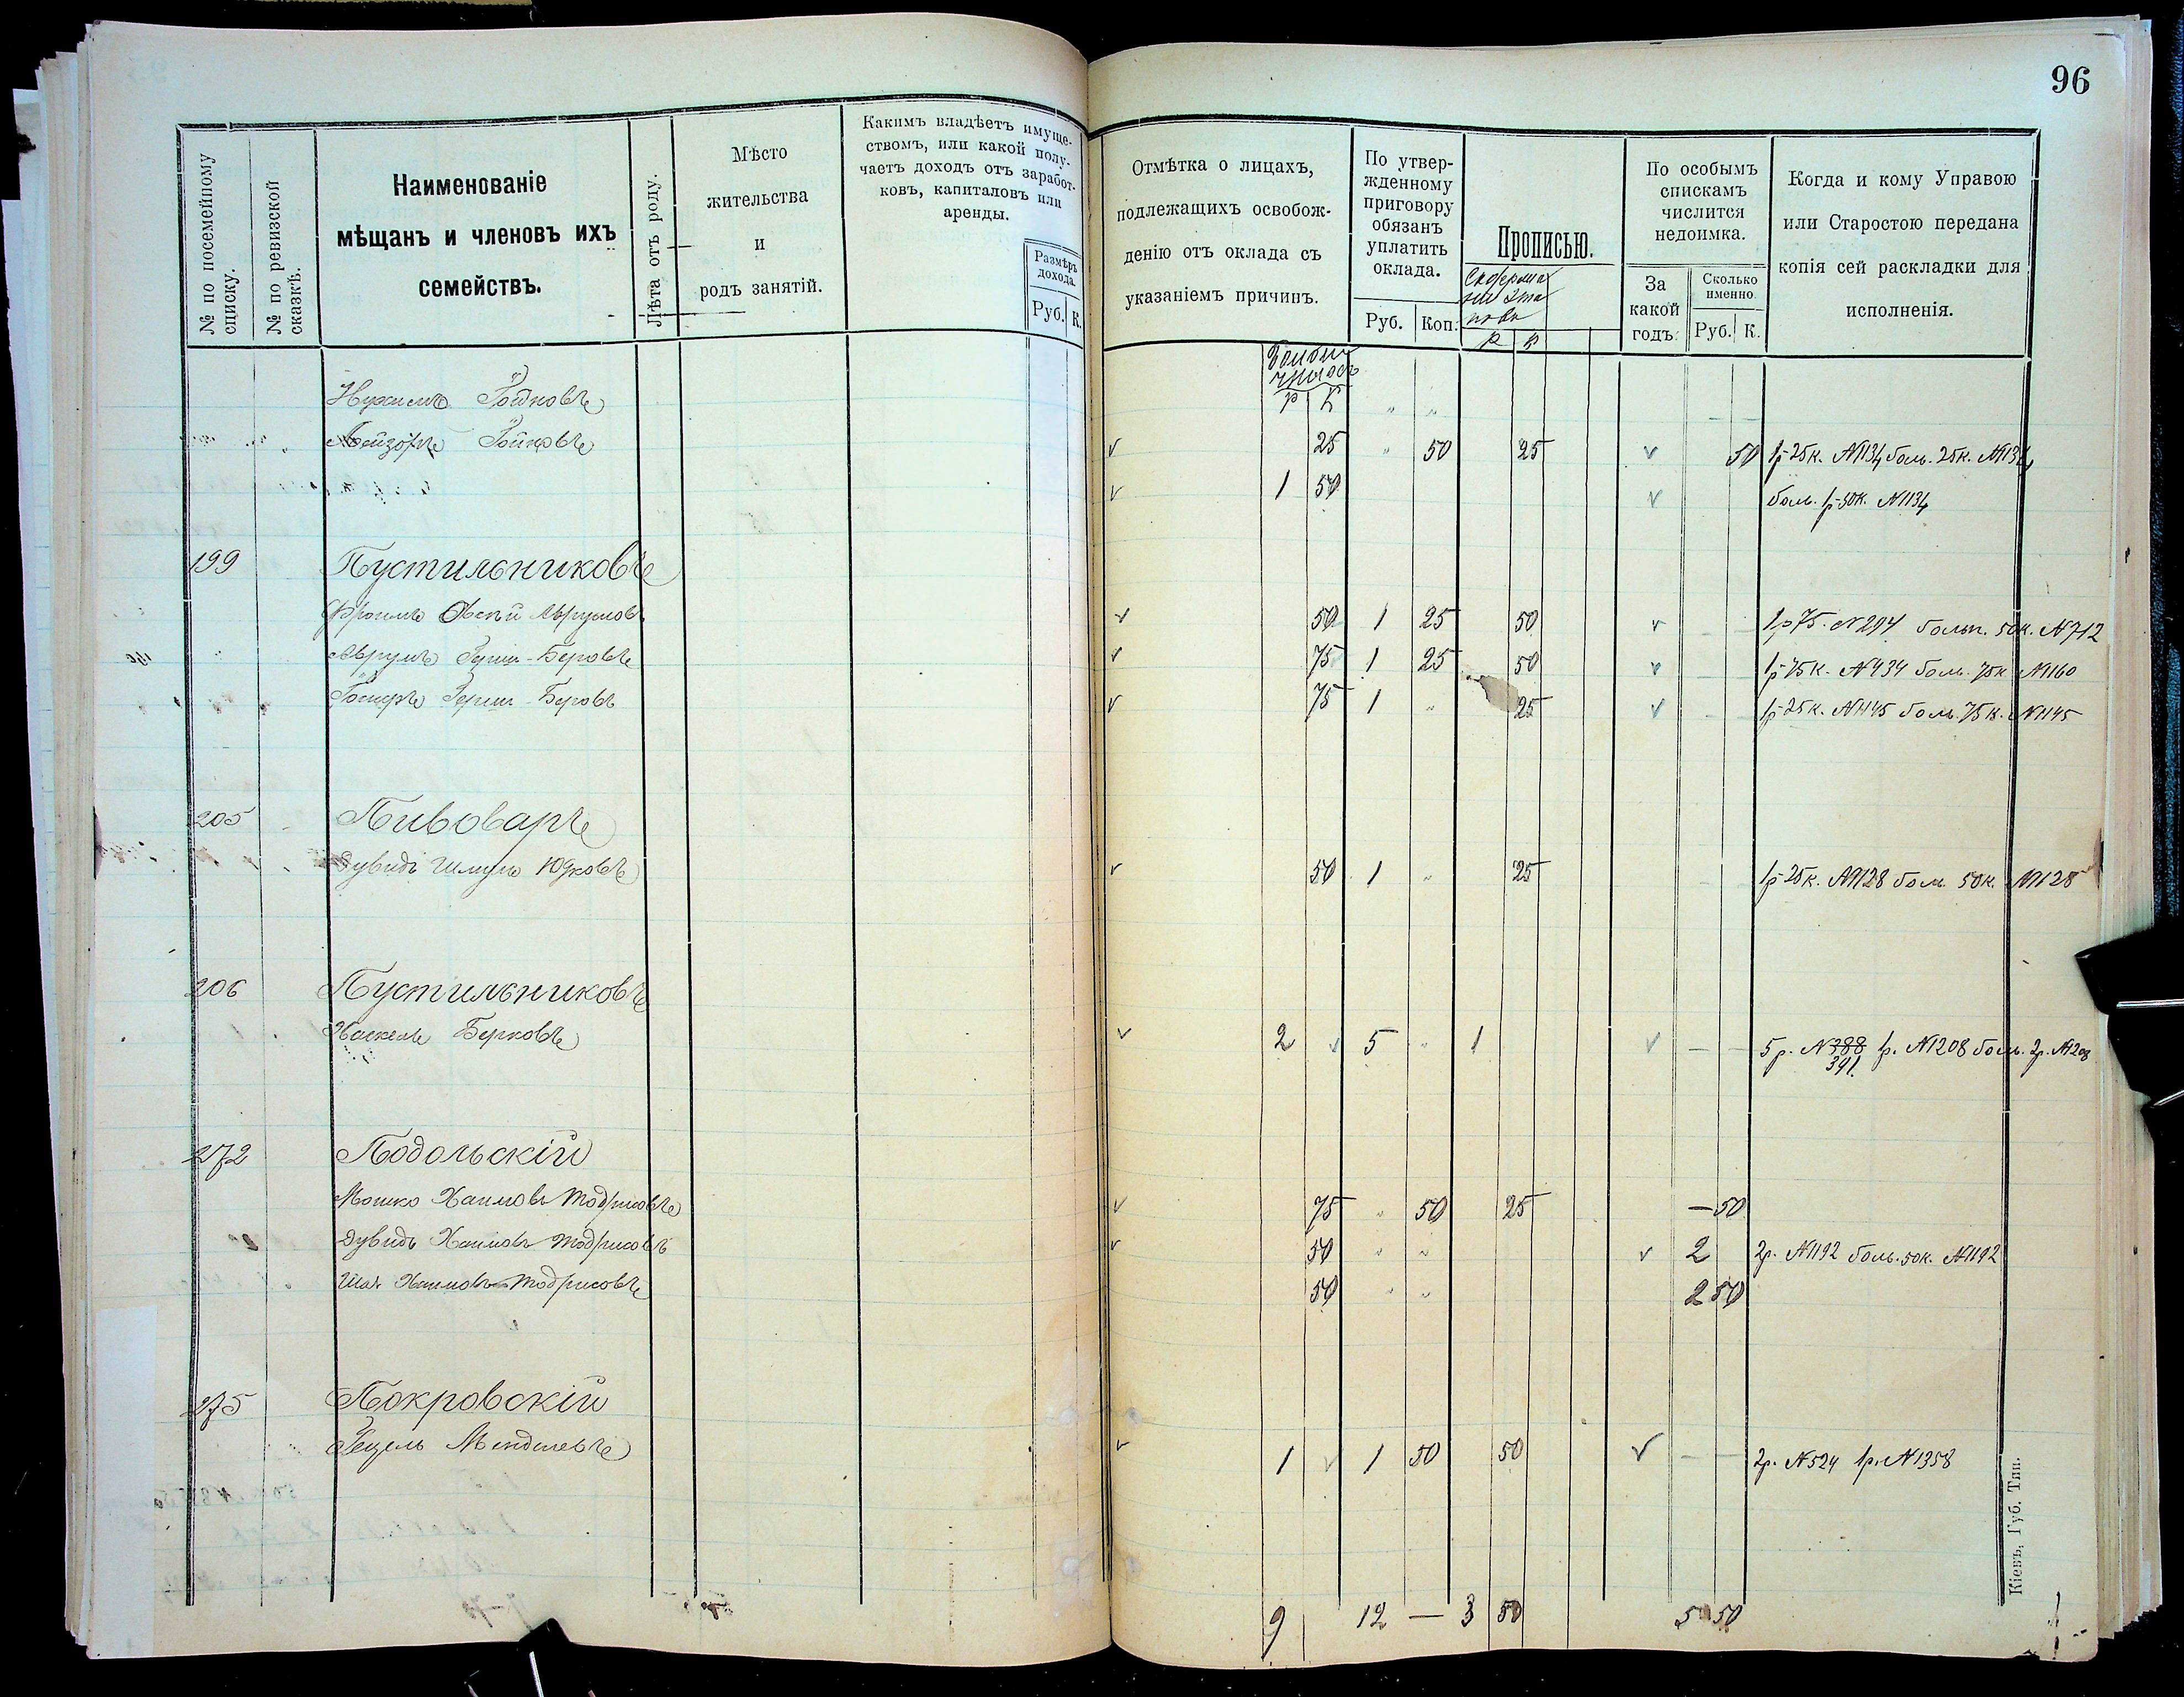 96
№ по посемейному списку.
№ по ревизской сказкѣ.
Наименованіе
мѣщанъ и членовъ ихъ
семействъ.
Лѣта отъ роду.
Мѣсто
жительства
и
родъ занятій.
Какимъ владѣетъ имуще-
ствомъ, или какой полу-
чаетъ доходъ отъ заработ-
ковъ, капиталовъ или
аренды.
Размѣръ
дохода.
Руб. К.
Отмѣтка о лицахъ,
подлежащихъ освобож-
денію отъ оклада съ
указаніемъ причинъ.
По утвер-
жденному
приговору
обязанъ
уплатить
оклада.
Руб. Коп.
Прописью.
Р К
По особымъ
спискамъ
числится
недоимка.
За
какой
годъ.
Сколько
именно.
Руб. К.
Когда и кому Управою
или Старостою передана
копія сей раскладки для
исполненія.
Р К
Нухимъ
Лейзоръ 25 50 25 50 1р 25к. №1134 боль. 25к. №1134
1 50 боль. 1р 50к. №1134
199 Пустильниковъ
Фроимъ Аврумовъ 50 1 25 50 1р 75. №294 больн. 50к. №712
Аврумъ Герш-Беровъ 75 1 25 50 1р 75к. №434 боль. 75к №1160
Герш-Беровъ 75 1 25 1р 25к. №1145 боль. 75к. №1145
205 Пивоваръ
Дувидъ Шмуль Юдковъ 50 1 25 1р 25к. №1128 боль. 50к. №1128
206 Пустильниковъ
Хаскель Берковъ 2 5 1 5р. №388 1р. №1208 боль. 2р. №1208
391
272 Подольскій
Мошко Хаимовъ Тодрисовъ 75 50 25 — 50
Дувидъ Хаимовъ Тодрисовъ 50 2 2р. №1192 боль. 50к. №1192
Шая Хаимовъ Тодрисовъ 50 2 50
275 Покровскій
Гецель Менделевъ 1 1 50 50 2р. №524 1р. №1358
9 12 — 3 50 5 50
Кіевъ, Губ. Тип.